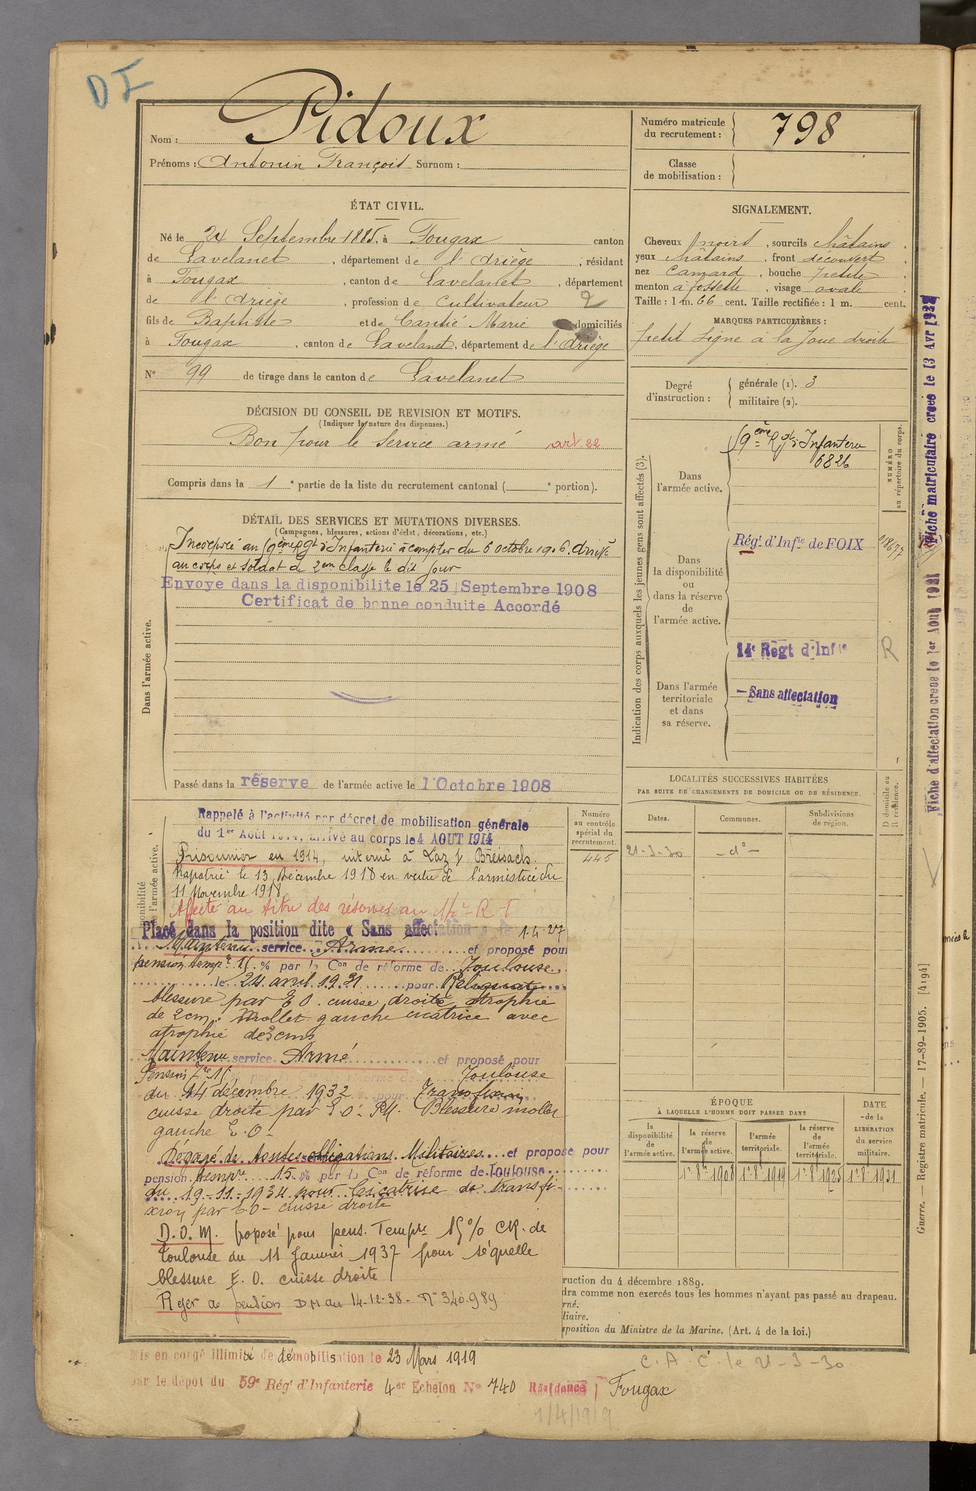 DI
Nom : Pidoux
Prénoms : Antonin François Surnom :
Numéro matricule du recrutement : 798
Classe de mobilisation :
ÉTAT CIVIL.
Né le 24 Septembre 1885, à Fougax canton
de Lavelanet, département de l'Ariège, résidant
à Fougax, canton de Lavelanet, département
de l'Ariège, profession de Cultivateur 2
fils de Baptiste et de Marie domiciliés
à Fougax, canton de Lavelanet, département de l'Ariège
N° 99 de tirage dans le canton de Lavelanet
SIGNALEMENT.
Cheveux noirs, sourcils châtains.
yeux châtains, front découvert,
nez camard, bouche petite,
menton à fossette, visage ovale.
Taille : 1 m. 66 cent. Taille rectifiée : 1 m. cent.
MARQUES PARTICULIÈRES :
petit signe à la joue droite
Degré d'instruction : générale (1). 3
militaire (2).
DÉCISION DU CONSEIL DE REVISION ET MOTIFS.
(Indiquer la nature des dispenses.)
Bon pour le service armé art 22
Compris dans la 1 e partie de la liste du recrutement cantonal ( e portion).
DÉTAIL DES SERVICES ET MUTATIONS DIVERSES.
(Campagnes, blessures, actions d'éclat, décorations, etc.)
Dans l'armée active.
Incorporé au 59ème Rgt d'Infanterie à compter du 6 octobre 1906. Arrivé
au corps et soldat de 2ème classe le dit jour
Envoyé dans la disponibilité le 25 Septembre 1908
Certificat de bonne conduite Accordé
Passé dans la réserve de l'armée active le 1 Octobre 1908
Indication des corps auxquels les jeunes gens sont affectés (3).
NUMÉRO au répertoire du corps.
Dans l'armée active.
59ème Rgt d'Infanterie
6826
Dans la disponibilité ou dans la réserve de l'armée active.
Rég. d'Inf.ie de FOIX
Dans l'armée territoriale et dans sa réserve.
14e Regt d'Inf.ie
R
Sans affectation
LOCALITÉS SUCCESSIVES HABITÉES
PAR SUITE DE CHANGEMENTS DE DOMICILE OU DE RÉSIDENCE.
Dates. Communes. Subdivisions de région. D domicile ou R résidence.
21-3-30 - d° -
Numéro au contrôle spécial du recrutement.
446
Rappelé à l'activité par décret de mobilisation générale
du 1er Août 1914, arrivé au corps le 4 AOUT 1914
Prisonnier en 1914, interné à
Rapatrié le 13 décembre 1918 en vertu de l'armistice du
11 Novembre 1918
Affecté au titre des réserves au
Placé dans la position dite « Sans affectation »
Maintenu service Armé et proposé pour
pension temp.re 15 % par la Con de réforme de Toulouse
le 24 avril 1931 pour Reliquat
blessure par E O. cuisse droite atrophie
de 2cm. Mollet gauche cicatrice avec
atrophie de 3cms
Maintenu service Armé et proposé pour
Pension Tre 15 Toulouse
du 14 décembre 1932 pour Transfixion
cuisse droite par E. O. Blessure mollet
gauche E. O.
Dégagé de toutes obligations Militaires et proposé pour
pension temp.re 15 % par la Con de réforme de Toulouse
du 19-11-1934 pour Cicatrice de transfi-
xion par E O - cuisse droite
D. O. M. proposé pour pens. Tempre 15% CR. de
Toulouse du 11 Janvier 1937 pour séquelle
blessure E. O. cuisse droite
Rejet de pension DM du 14-12-38 - N° 340.989
ÉPOQUE
À LAQUELLE L'HOMME DOIT PASSER DANS
la disponibilité de l'armée active. la réserve de l'armée active. l'armée territoriale. la réserve de l'armée territoriale. DATE de la LIBÉRATION du service militaire.
1er 8bre 1908 1er 8bre 1919 1er 8bre 1925 1er 8bre 1931
ruction du 4 décembre 1889.
dra comme non exercés tous les hommes n'ayant pas passé au drapeau.
rné.
liaire.
sposition du Ministre de la Marine. (Art. 4 de la loi.)
Mis en congé illimité de démobilisation le 23 Mars 1919
par le dépôt du 59e Rég. d'Infanterie 4er Echelon N° 740 Résidence Fougax
C. A. C. le 21-3-30
1/4/1919
Fiche d'affectation créée le 1er Août 1921 Fiche matriculaire créée le 13 Avr 1932
Guerre. — Registre matricule. — 17-89-1905. [4194]